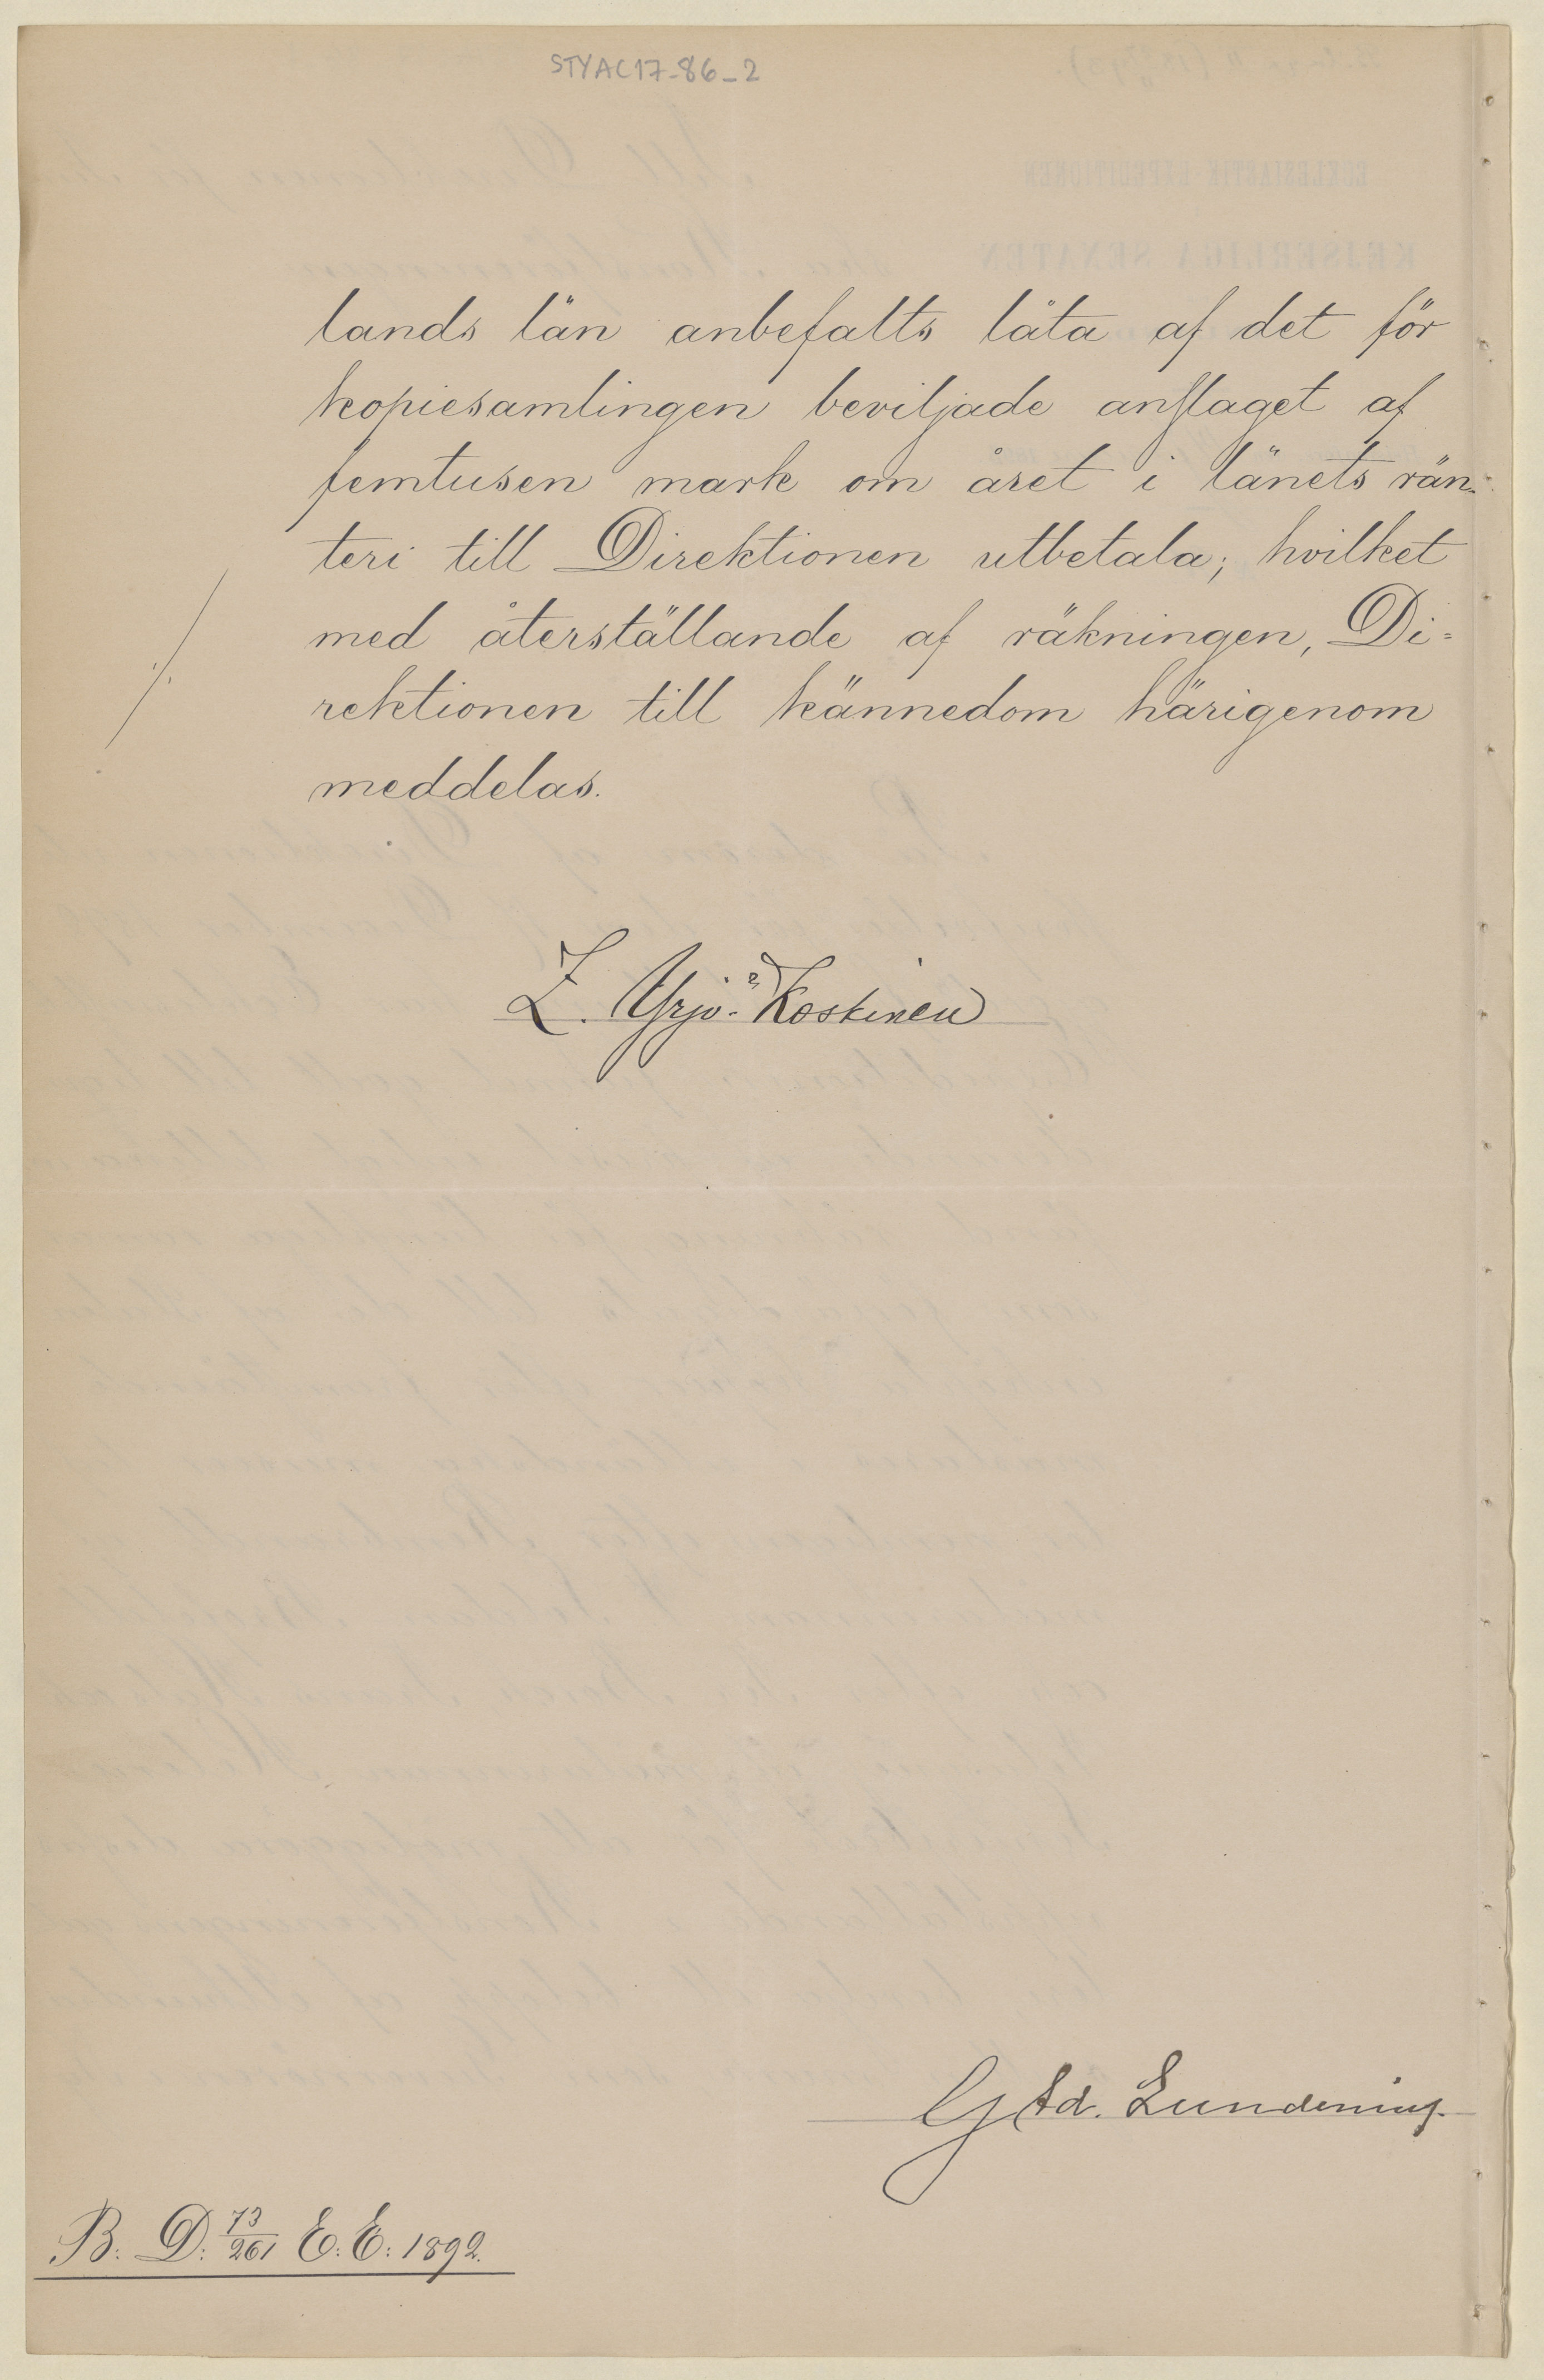 STYAC17-86-2
lands län anbefalts låta af det för
kopiesamlingen beviljade anslaget af
femtusen mark om året i länets rän-
teri till Direktionen utbetala; hvilket
med återställande af räkningen, Di=
rektionen till kännedom härigenom
meddelas.
Z. Yrjö-Koskinen
B. D. 73/261 E. E. 1892.